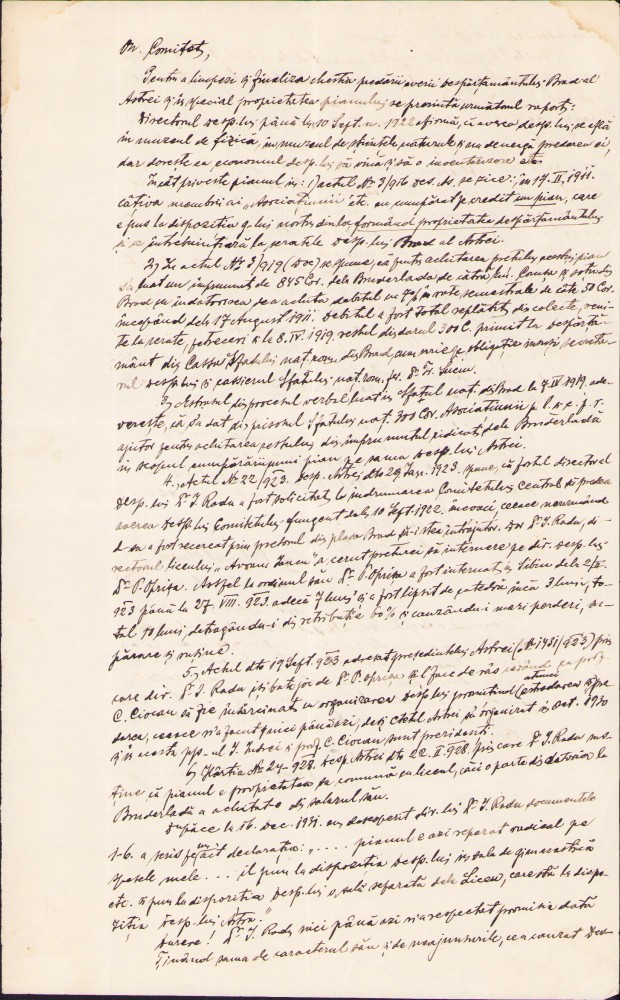 On. Comitet,
Pentru a limpezi și finaliza chestia predării averii despărțământului Brad al
Astrei și în special proprietatea pianului se prezintă următorul raport:
Directorul desp.lui până la 10 Sept. n. 1922 afirmă, că averea desp.lui se află
în muzeul de fizică, în muzeul de științele naturale și nu denegă predarea ei,
dar dorește ca economul desp.lui să vină și să o inventarieze
Încât privește pianul în: 1) actul Nr 3/916 des. As. se zice: "în 17. II. 1911.
câțiva membri ai "Asociațiunii" etc. au cumpărat pe credit un pian, care
e pus la dispoziția lui nostru formând proprietatea despărțământului
și se întrebuințează la seratele desp.lui Brad al Astrei.
2) În actul Nr 3/919 (Doc) se spune, că pentru achitarea prețului acestui pian
s'a luat un împrumut de 845 Cor. dela Bruderlada de către
Brad cu îndatorirea de a achita debitul cu 7% în rate semestrale de câte 50 Cor.
începând dela 17 August 1911. Debitul a fost total replătit din colecte, veni-
te la serate, petreceri și la 8. IV. 1919. restul din darul 300 C. primit la despărță-
mânt din Cassa Sfatului naț. rom. din Brad, cum scrie pe obligație însuși secreta-
rul desp.lui și cassierul Sfatului naț. rom. Dr.
3) Extrasul din procesul verbal luat în Sfatul naț. din Brad la 7 IV 1919. ade-
verește, că s'a dat din prisosul Sfatului naț. 300 Cor. Asociațiunii p. l. r. c. p. r.
ajutor pentru achitarea restului din împrumutul ridicat dela Bruderladă
în scopul cumpărării unui pian pe sama desp.lui Astrei.
4. Actul Nr 22/923. desp. Astrei dto 29 Ian. 1923. spune, că fostul director al
desp.lui Dr I. Radu a fost solicitat la îndrumarea Comitetului Central să predea
averea desp.lui Comitetului fungent dela 10 Sept. 1922. încoaci, ceeace neurmând
d-sa a fost recercat prin pretorul din plasa Brad Dr I. Radu, di-
rectorul liceului "Avram Iancu" a cerut prefecturei să interneze pe dir. desp.lui
Dr P. Oprișa. Astfel la ordinul său Dr P. Oprișa a fost internat în Sibiu dela
923 până la 27. VIII. 923. adecă 7 luni și a fost lipsit de catedră încă 3 luni, to-
tal 10 luni, detragându-i din retribuție 60% și cauzându-i mari perderi, su-
părare și rușine.
5) Actul dto 19 Sept. 923 adresat președintelui Astrei (Nr 1431/923) prin
care dir. Dr. I. Radu își bate joc de Dr P. Oprișa și îl face de râs cerând ca prof.
C. Ciocan să fie încărcinat cu organizarea desp.lui promițând atunci extradarea și pre
darea, ceeace n'a făcut nici până azi, deși cercul Astrei s'a organizat în Oct. 1930
și în acesta pp. ul I. Indrei și prof. C. Ciocan sunt prezidenți.
6) Hârtia Nr 24-928 desp. Astrei dto 22. II. 928. prin care Dr I. Radu sus-
ține că pianul e proprietatea sa comună cu liceul, căci o parte din datoria la
Bruderladă a achitat-o din salarul său.
După ce la 16. Dec. 1931. am descoperit dir.lui Dr I. Radu documentele
1-6. a scris și făcut declarația: ".... pianul e azi reparat radical pe
spesele mele ... îl pun la dispoziția desp.lui în sala de gimnastică
etc. și pun la dispoziția desp.lui o sală separată dela liceu, care stă la dispo-
ziția desp.lui Astra."
Durere! Dr I. Radu nici până azi n'a respectat promisia dată
Ținând sama de caracterul său și de neajunsurile, ce a cauzat des-